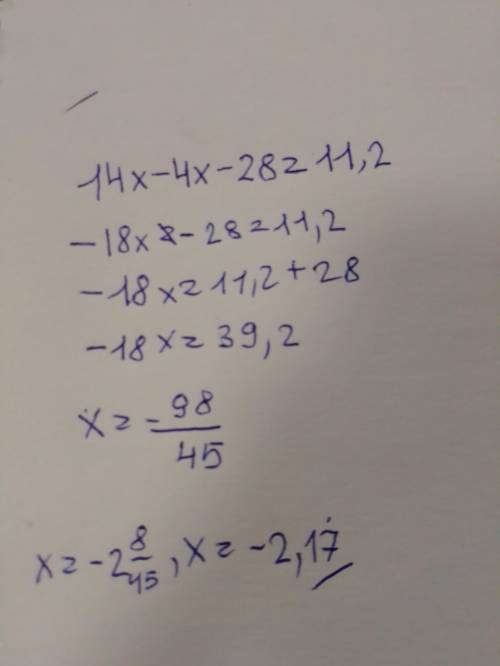 14x-4x-28=11,2
-18x-28=11,2
-18x=11,2+28
-18x=39,2
x=-98/45
x=-2 8/45, x=-2,17